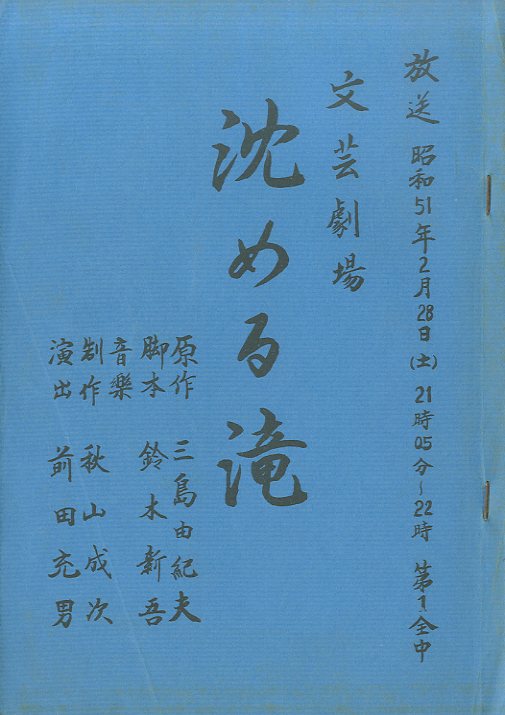 放送 昭和51年2月28日(土) 21時05分~22時 第1全中
文芸劇場
沈める滝
原作 三島由紀夫
脚本 鈴木新吾
音楽
制作 秋山成次
演出 前田充男